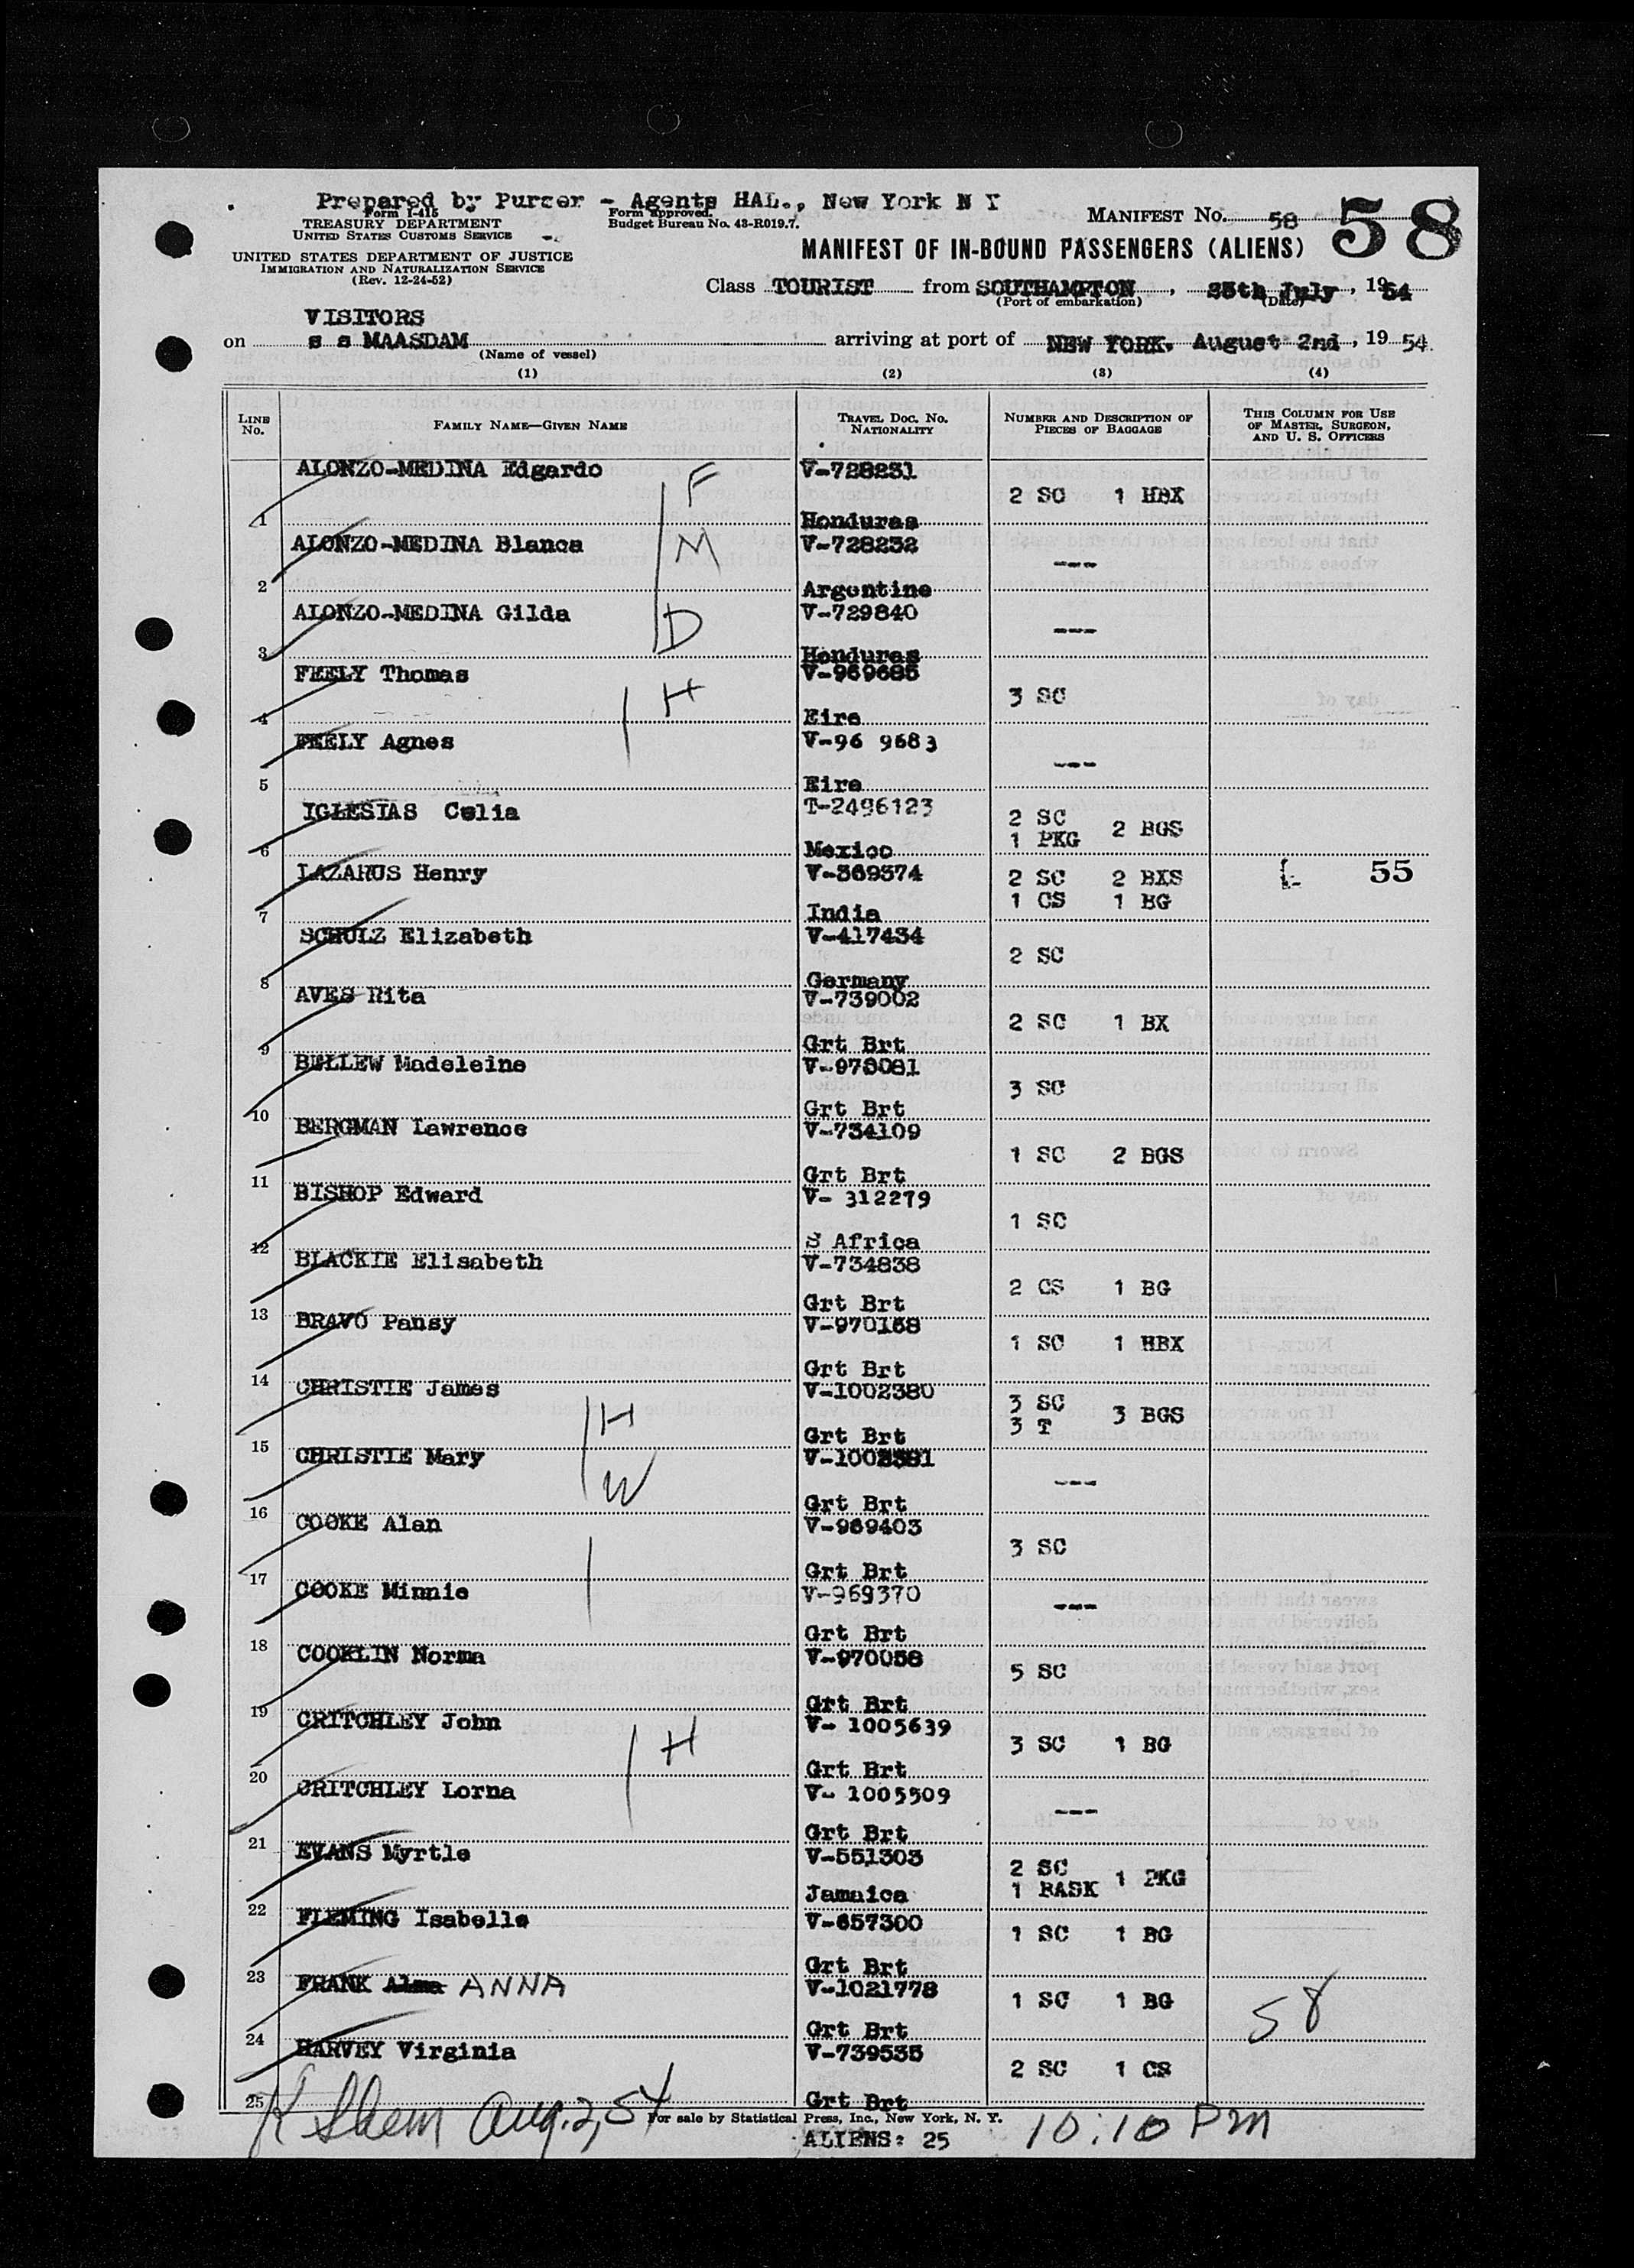 Prepared by Purser - Agents HAL., New York N Y
Form I-415
TREASURY DEPARTMENT
UNITED STATES CUSTOMS SERVICE
Form approved.
Budget Bureau No. 43-R019.7.
MANIFEST No. 58 58
UNITED STATES DEPARTMENT OF JUSTICE
IMMIGRATION AND NATURALIZATION SERVICE
(Rev. 12-24-52)
MANIFEST OF IN-BOUND PASSENGERS (ALIENS)
Class TOURIST from SOUTHAMPTON, 25th July, 1954
(Port of embarkation) (Date)
VISITORS
on s s MAASDAM arriving at port of NEW YORK. August 2nd, 19 54.
(Name of vessel)
(1) (2) (3) (4)
LINE No. FAMILY NAME—GIVEN NAME TRAVEL DOC. NO. NATIONALITY NUMBER AND DESCRIPTION OF PIECES OF BAGGAGE THIS COLUMN FOR USE OF MASTER, SURGEON, AND U. S. OFFICERS
1 ALONZO-MEDINA Edgardo F V-728231 Honduras 2 SC 1 HBX
2 ALONZO-MEDINA Blanca M V-728232 Argentine ---
3 ALONZO-MEDINA Gilda D V-729840 Honduras ---
4 FEELY Thomas H V-969685 Eire 3 SC
5 FEELY Agnes V-96 9683 Eire ---
6 IGLESIAS Celia T-2496123 Mexico 2 SC 1 PKG 2 BGS
7 LAZARUS Henry V-369374 India 2 SC 1 CS 2 BXS 1 BG 55
8 SCHULZ Elizabeth V-417434 Germany 2 SC
9 AVES Rita V-739002 Grt Brt 2 SC 1 BX
10 BELLEW Madeleine V-973081 Grt Brt 3 SC
11 BERGMAN Lawrence V-734109 Grt Brt 1 SC 2 BGS
12 BISHOP Edward V- 312279 S Africa 1 SC
13 BLACKIE Elisabeth V-734838 Grt Brt 2 CS 1 BG
14 BRAVO Pansy V-970168 Grt Brt 1 SC 1 HBX
15 CHRISTIE James H V-1002380 Grt Brt 3 SC 3 T 3 BGS
16 CHRISTIE Mary W V-1002381 Grt Brt ---
17 COOKE Alan V-969403 Grt Brt 3 SC
18 COOKE Minnie V-969370 Grt Brt ---
19 COOKLIN Norma V-970058 Grt Brt 5 SC
20 CRITCHLEY John H V- 1005639 Grt Brt 3 SC 1 BG
21 CRITCHLEY Lorna V- 1005509 Grt Brt ---
22 EVANS Myrtle V-551303 Jamaica 2 SC 1 BASK 1 PKG
23 FLEMING Isabelle V-657300 Grt Brt 1 SC 1 BG
24 FRANK Alma ANNA V-1021778 Grt Brt 1 SC 1 BG 58
25 HARVEY Virginia V-739535 Grt Brt 2 SC 1 CS
Aug. 2, 54
For sale by Statistical Press, Inc., New York, N. Y.
ALIENS: 25
10:10 Pm